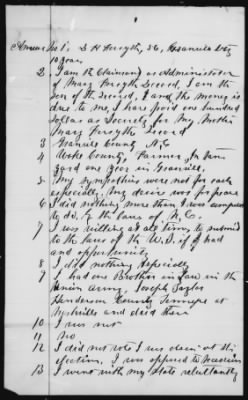 Answer No 1. D H Forsyth, 36, Granville Cty
10 year
2 I am the Claimant as Administrator
of Mary Forsyth Decd, I am the
son of the Decesed, and the money is
due to me, I have paid one hundred
dollars as Security for My Mother
Mary Forsyth Decesed
3 County N.C
4 County, Farmer
one year in Granville
5 My Sympathies were not for each
especially, My desire was for peace
6 I did nothing more than I was compeled
to do, by the laws of N.C.
7 I was willing at all times to submit
to the laws of the U.S. if I had
and oppertunity
8 I did nothing especially
9 I had one Brother in law in the
Union army. Joseph
Henderson County
and died there
10 I was not
11 No
12 I did not vote I was down at the
Election, I was opposed to secession
13 I went with my state reluctantly